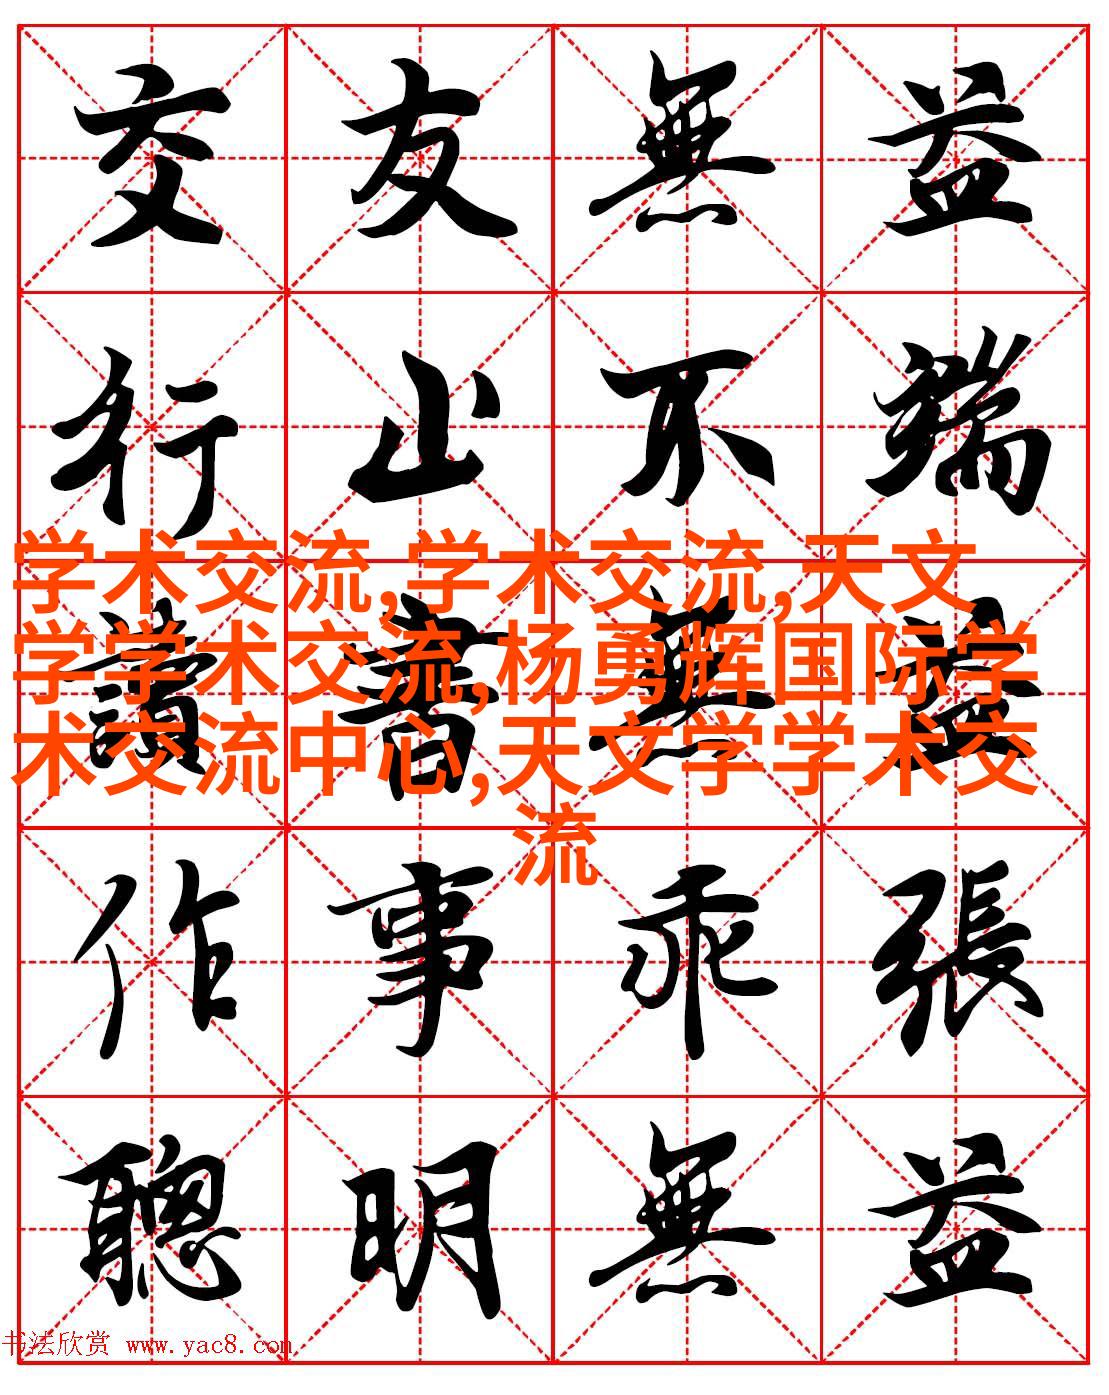 交友無益
行止不端
学术交流,学术交流,天文
学学术交流,杨勇辉国际学
术交流中心,天文学学术交
流
讀書無益
作事乖張
聰明無益
书法欣赏 www.yac8.com